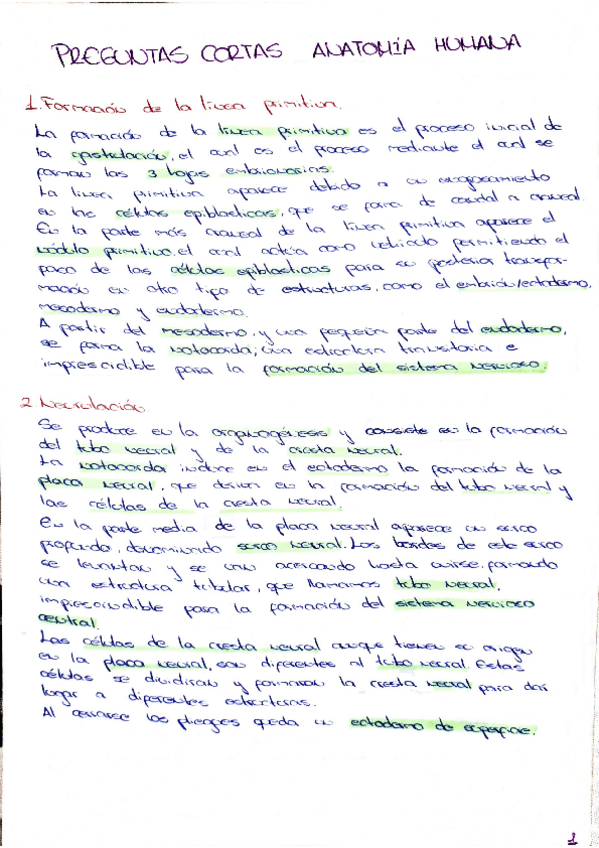 PREGUNTAS CORTAS ANATOMÍA HUMANA
1. Formación de la línea primitiva.
La formación de la línea primitiva es el proceso inicial de
la gastrulación, el cual es el proceso mediante el cual se
forman las 3 hojas embrionarias.
La línea primitiva aparece debido a un engrosamiento
en las células epiblásticas, que se forma de caudal a craneal.
En la parte más craneal de la línea primitiva aparece el
nódulo primitivo, el cual actúa como permitiendo el
paso de las células epiblásticas para su posterior transfor-
mación en otro tipo de estructuras, como el embrión/ectodermo,
mesodermo y endodermo.
A partir del mesodermo, y una pequeña parte del endodermo,
se forma la notocorda; una estructura transitoria e
imprescindible para la formación del sistema nervioso.
2. Neurulación.
Se produce en la organogénesis y consiste en la formación
del tubo neural y de la cresta neural.
La notocorda induce en el ectodermo la formación de la
placa neural, que deriva en la formación del tubo neural y
las células de la cresta neural.
En la parte media de la placa neural aparece un surco
profundo, denominado surco neural. Los bordes de este surco
se levantan y se van acercando hasta unirse, formando
una estructura tubular, que llamamos tubo neural,
imprescindible para la formación del sistema nervioso
central.
Las células de la cresta neural aunque tienen su origen
en la placa neural, son diferentes al tubo neural. Estas
células se dividirán y formarán la cresta neural para dar
lugar a diferentes estructuras.
Al cerrarse los pliegues queda un ectodermo de superficie.
1